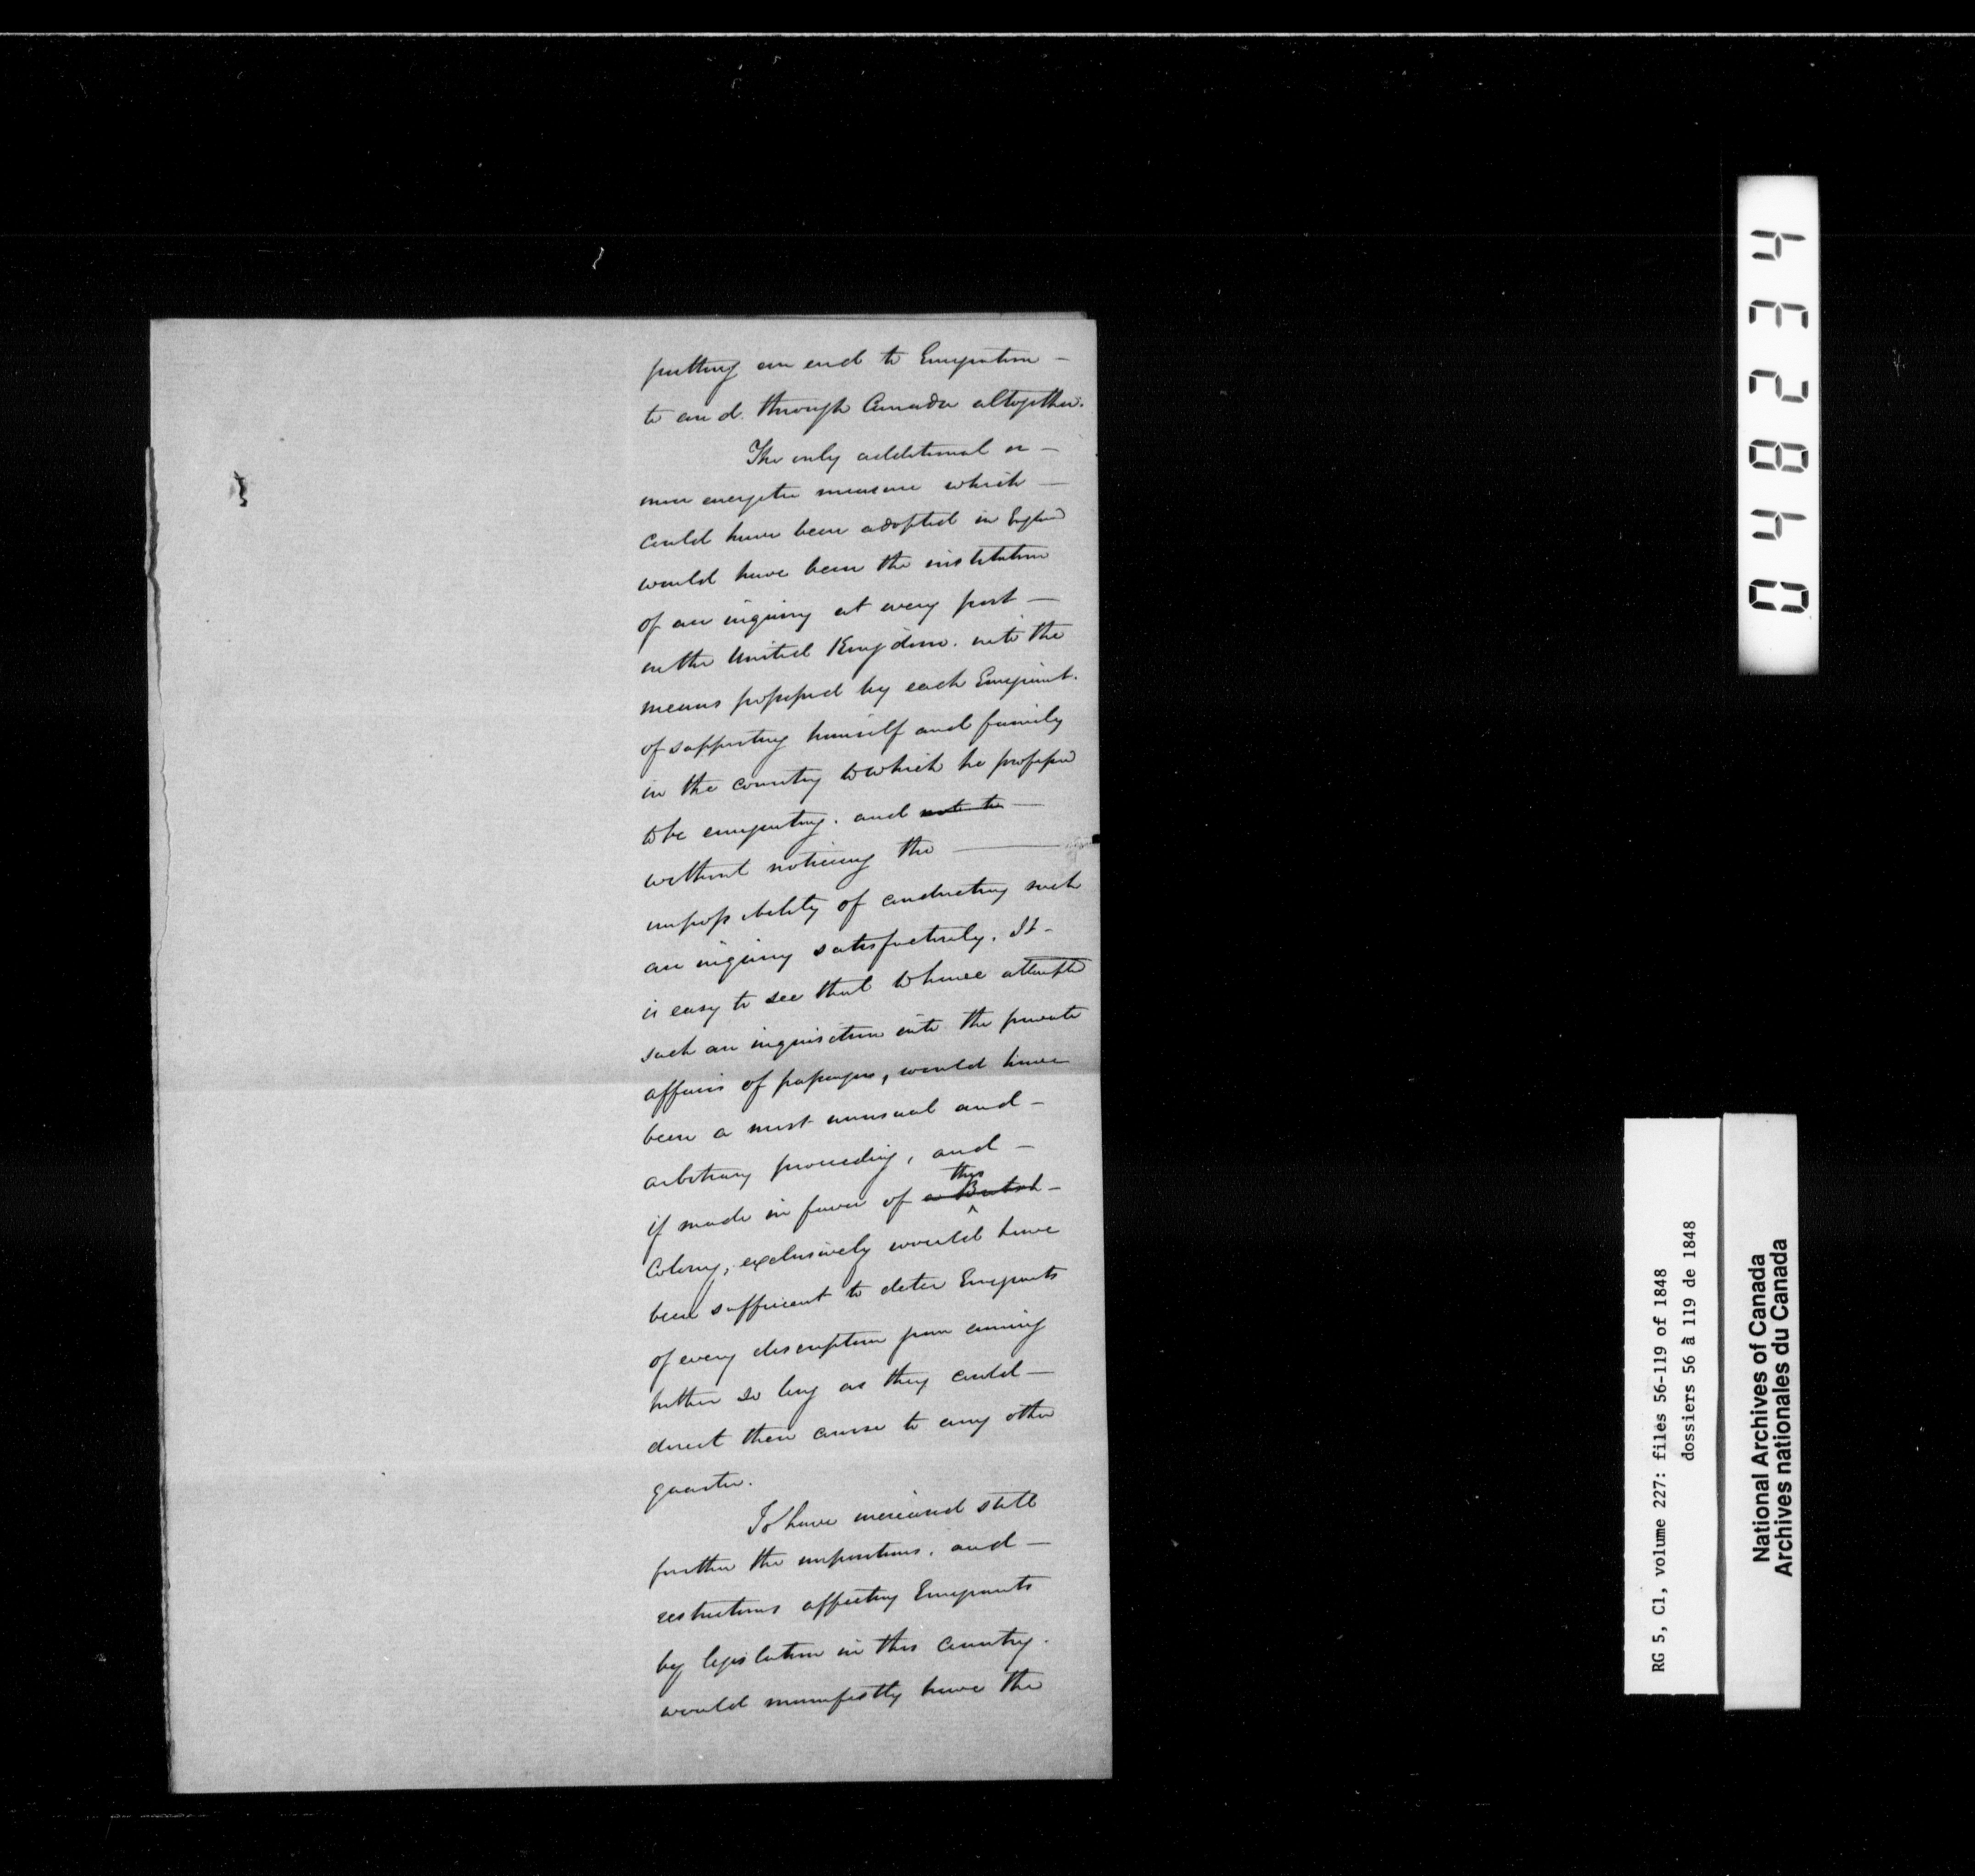 putting an end to Emigration —
to and through Canada altogether.
The only additional or —
more energetic measure which —
could have been adopted in England
would have been the institution
of an inquiry at every port —
in the United Kingdom. into the
means possessed by each Emigrant.
of supporting himself and family
in the country to which he proposed
to be emigrating. and into the —
without noticing the —
impossibility of conducting such
an inquiry satisfactorily. It -
is easy to see that to have attempted
such an inquisition into the private
affairs of passengers, would have
been a most unusual and —
arbitrary proceeding, and —
this
if made in favor of a British —
Colony, exclusively would have
been sufficient to deter Emigrants
of every description from coming
hither so long as they could —
direct their course to any other
quarter.
To have increased still
further the impositions. and —
restrictions affecting Emigrants
by legislation in this Country.
would manifestly have the
043284
RG 5, C1, volume 227: files 56-119 of 1848
dossiers 56 à 119 de 1848
National Archives of Canada
Archives nationales du Canada